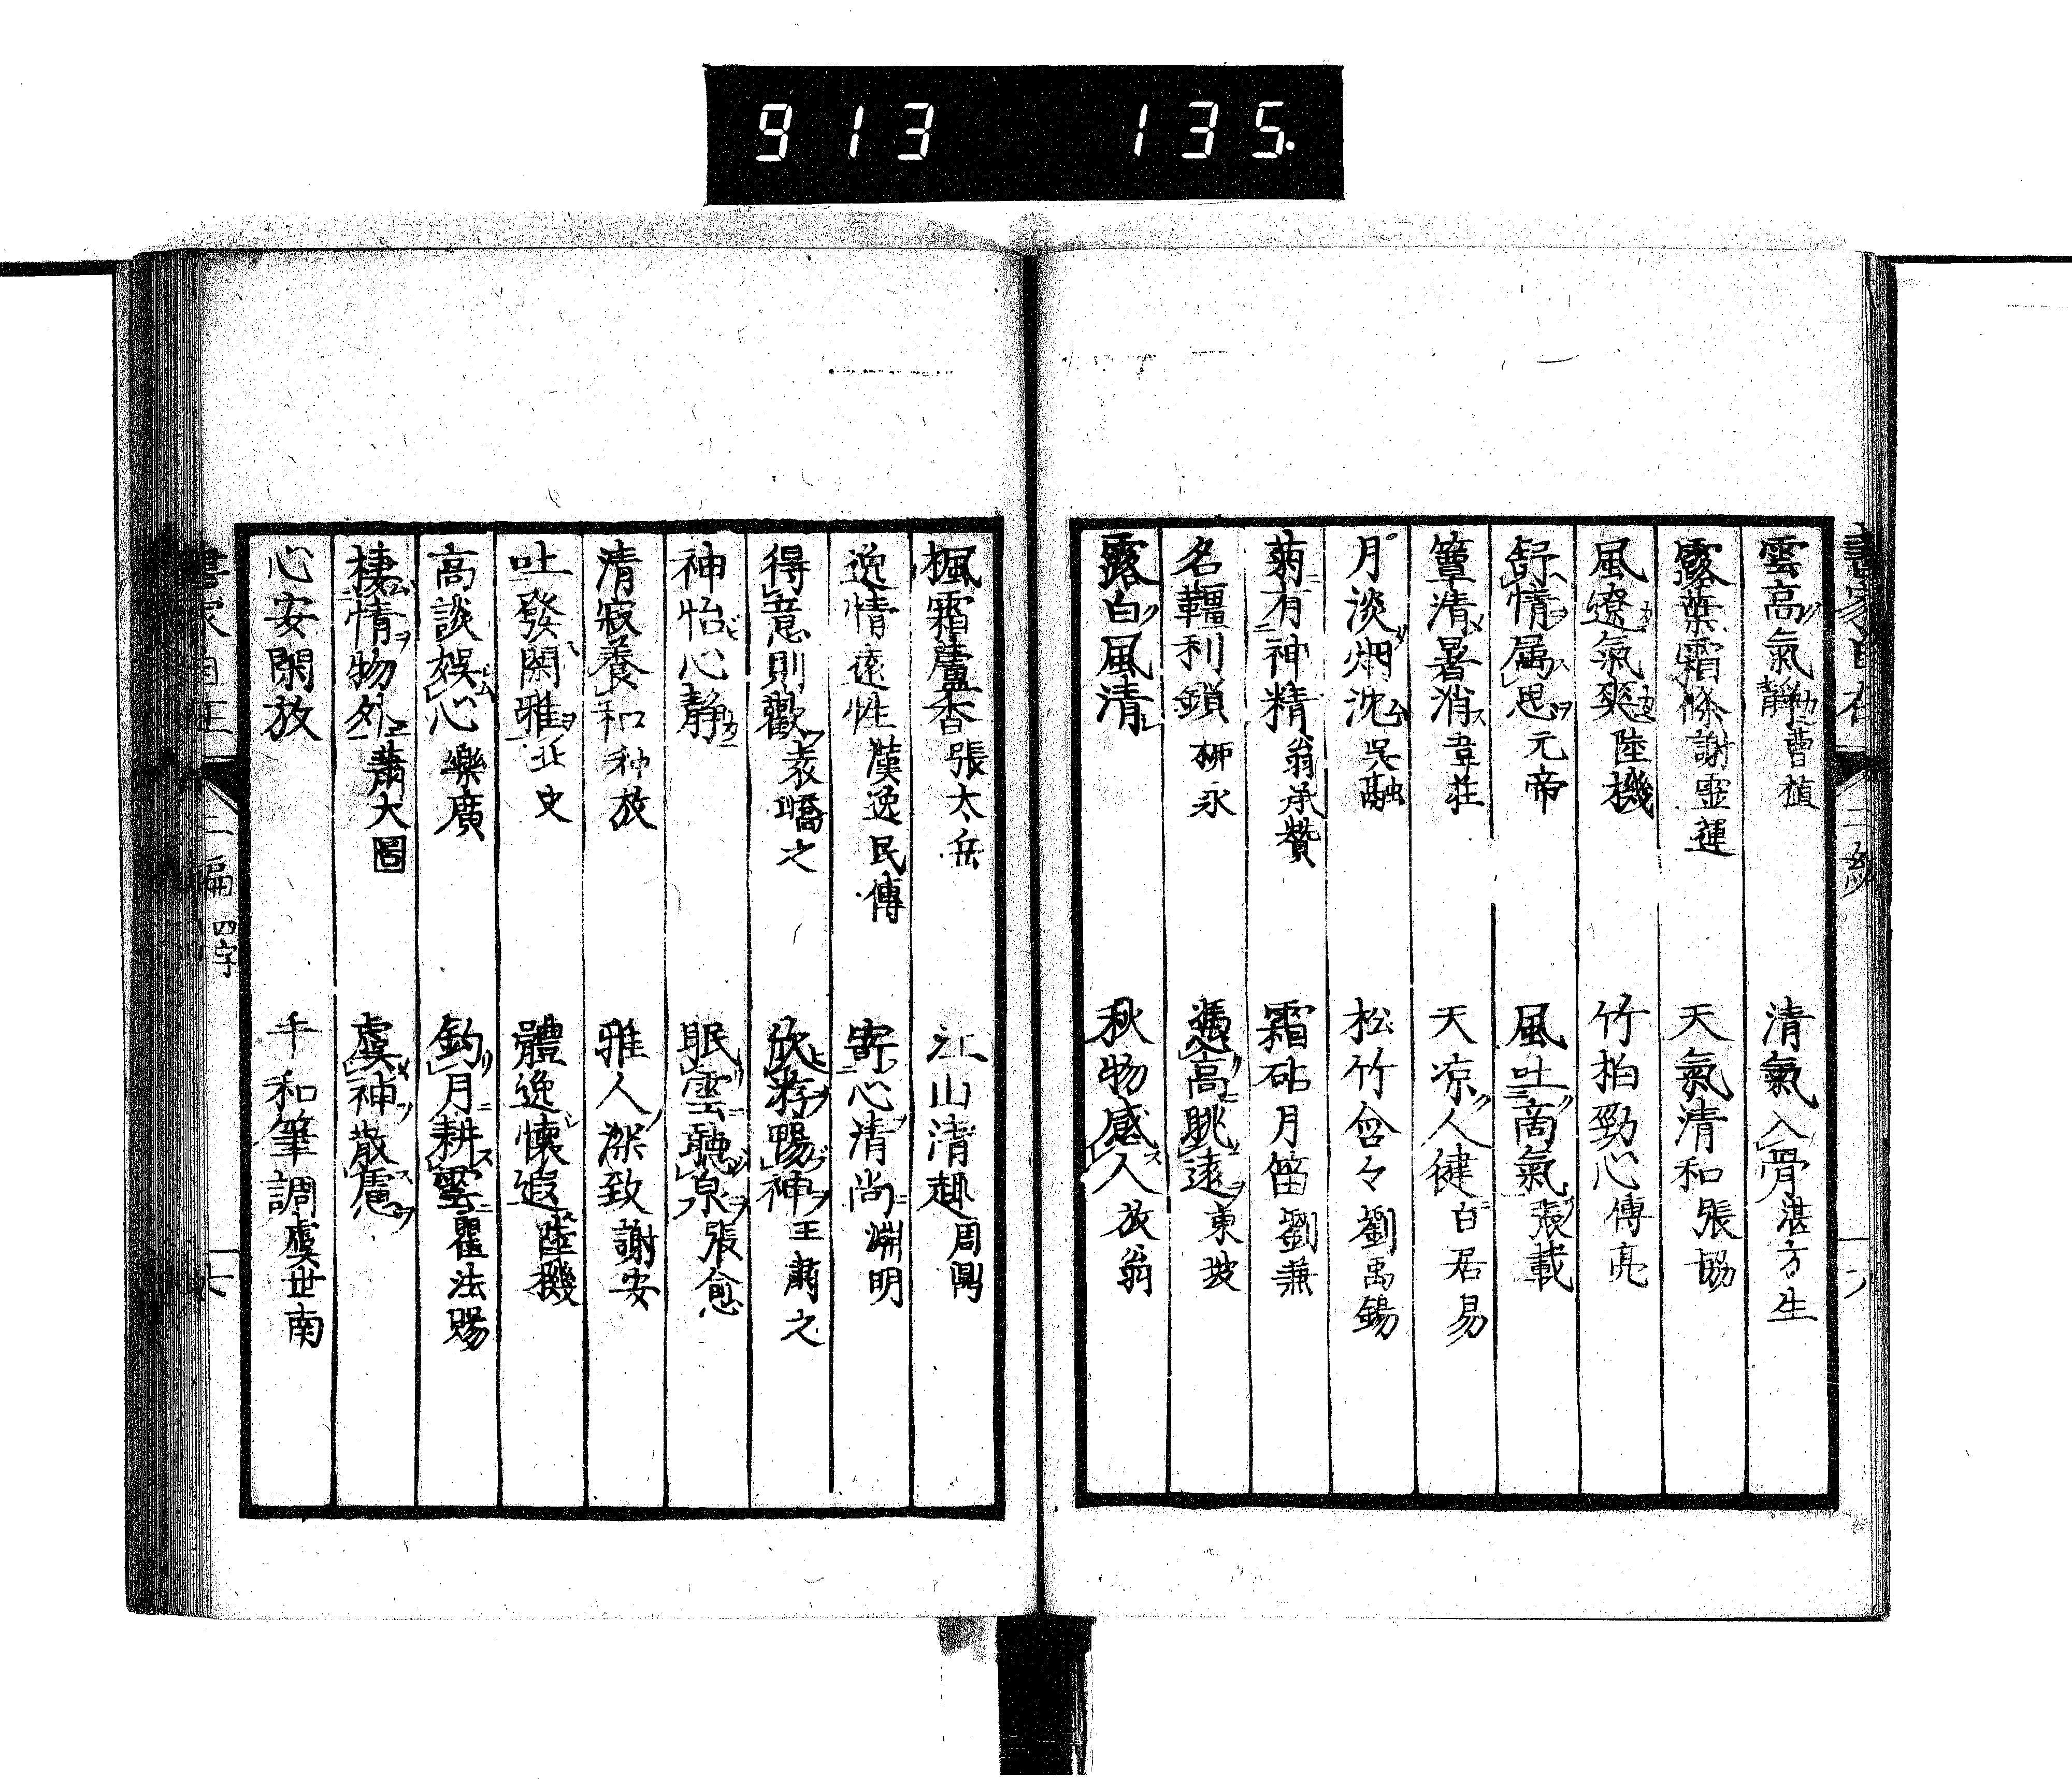 913 135.
雲高氣靜 曹植 清氣入骨 湛方生
露葉霜條 謝靈運 天氣清和 張協
風遼氣爽 陸機 竹柏勁心 傅亮
舒情属思 元帝 風吐商氣 張載
簟清暑消 韋莊 天凉人健 白居易
月淡烟沈 吳融 松竹含々 劉禹錫
菊有神精 翁承贊 霜砧月笛 劉兼
名韁利鎖 柳永 馮高眺遠 東坡
露白風清 秋物感人 放翁
楓霜蘆香 張太岳 江山清趣 周興
逸情遠性 漢逸民傳 寄心清尚 淵明
得意則歡 袁嶠之 欣游暢神 王肅之
神怡心靜 眠雲聽泉 張愈
清寂養和 种放 雅人深致 謝安
吐發閑雅 北史 體逸懷遐 陸機
高談娯心 樂廣 釣月耕雲 瞿法賜
棲情物外 蕭大圜 虞神散慮
心安閑放 手和筆調 虞世南
二編 四字
十七